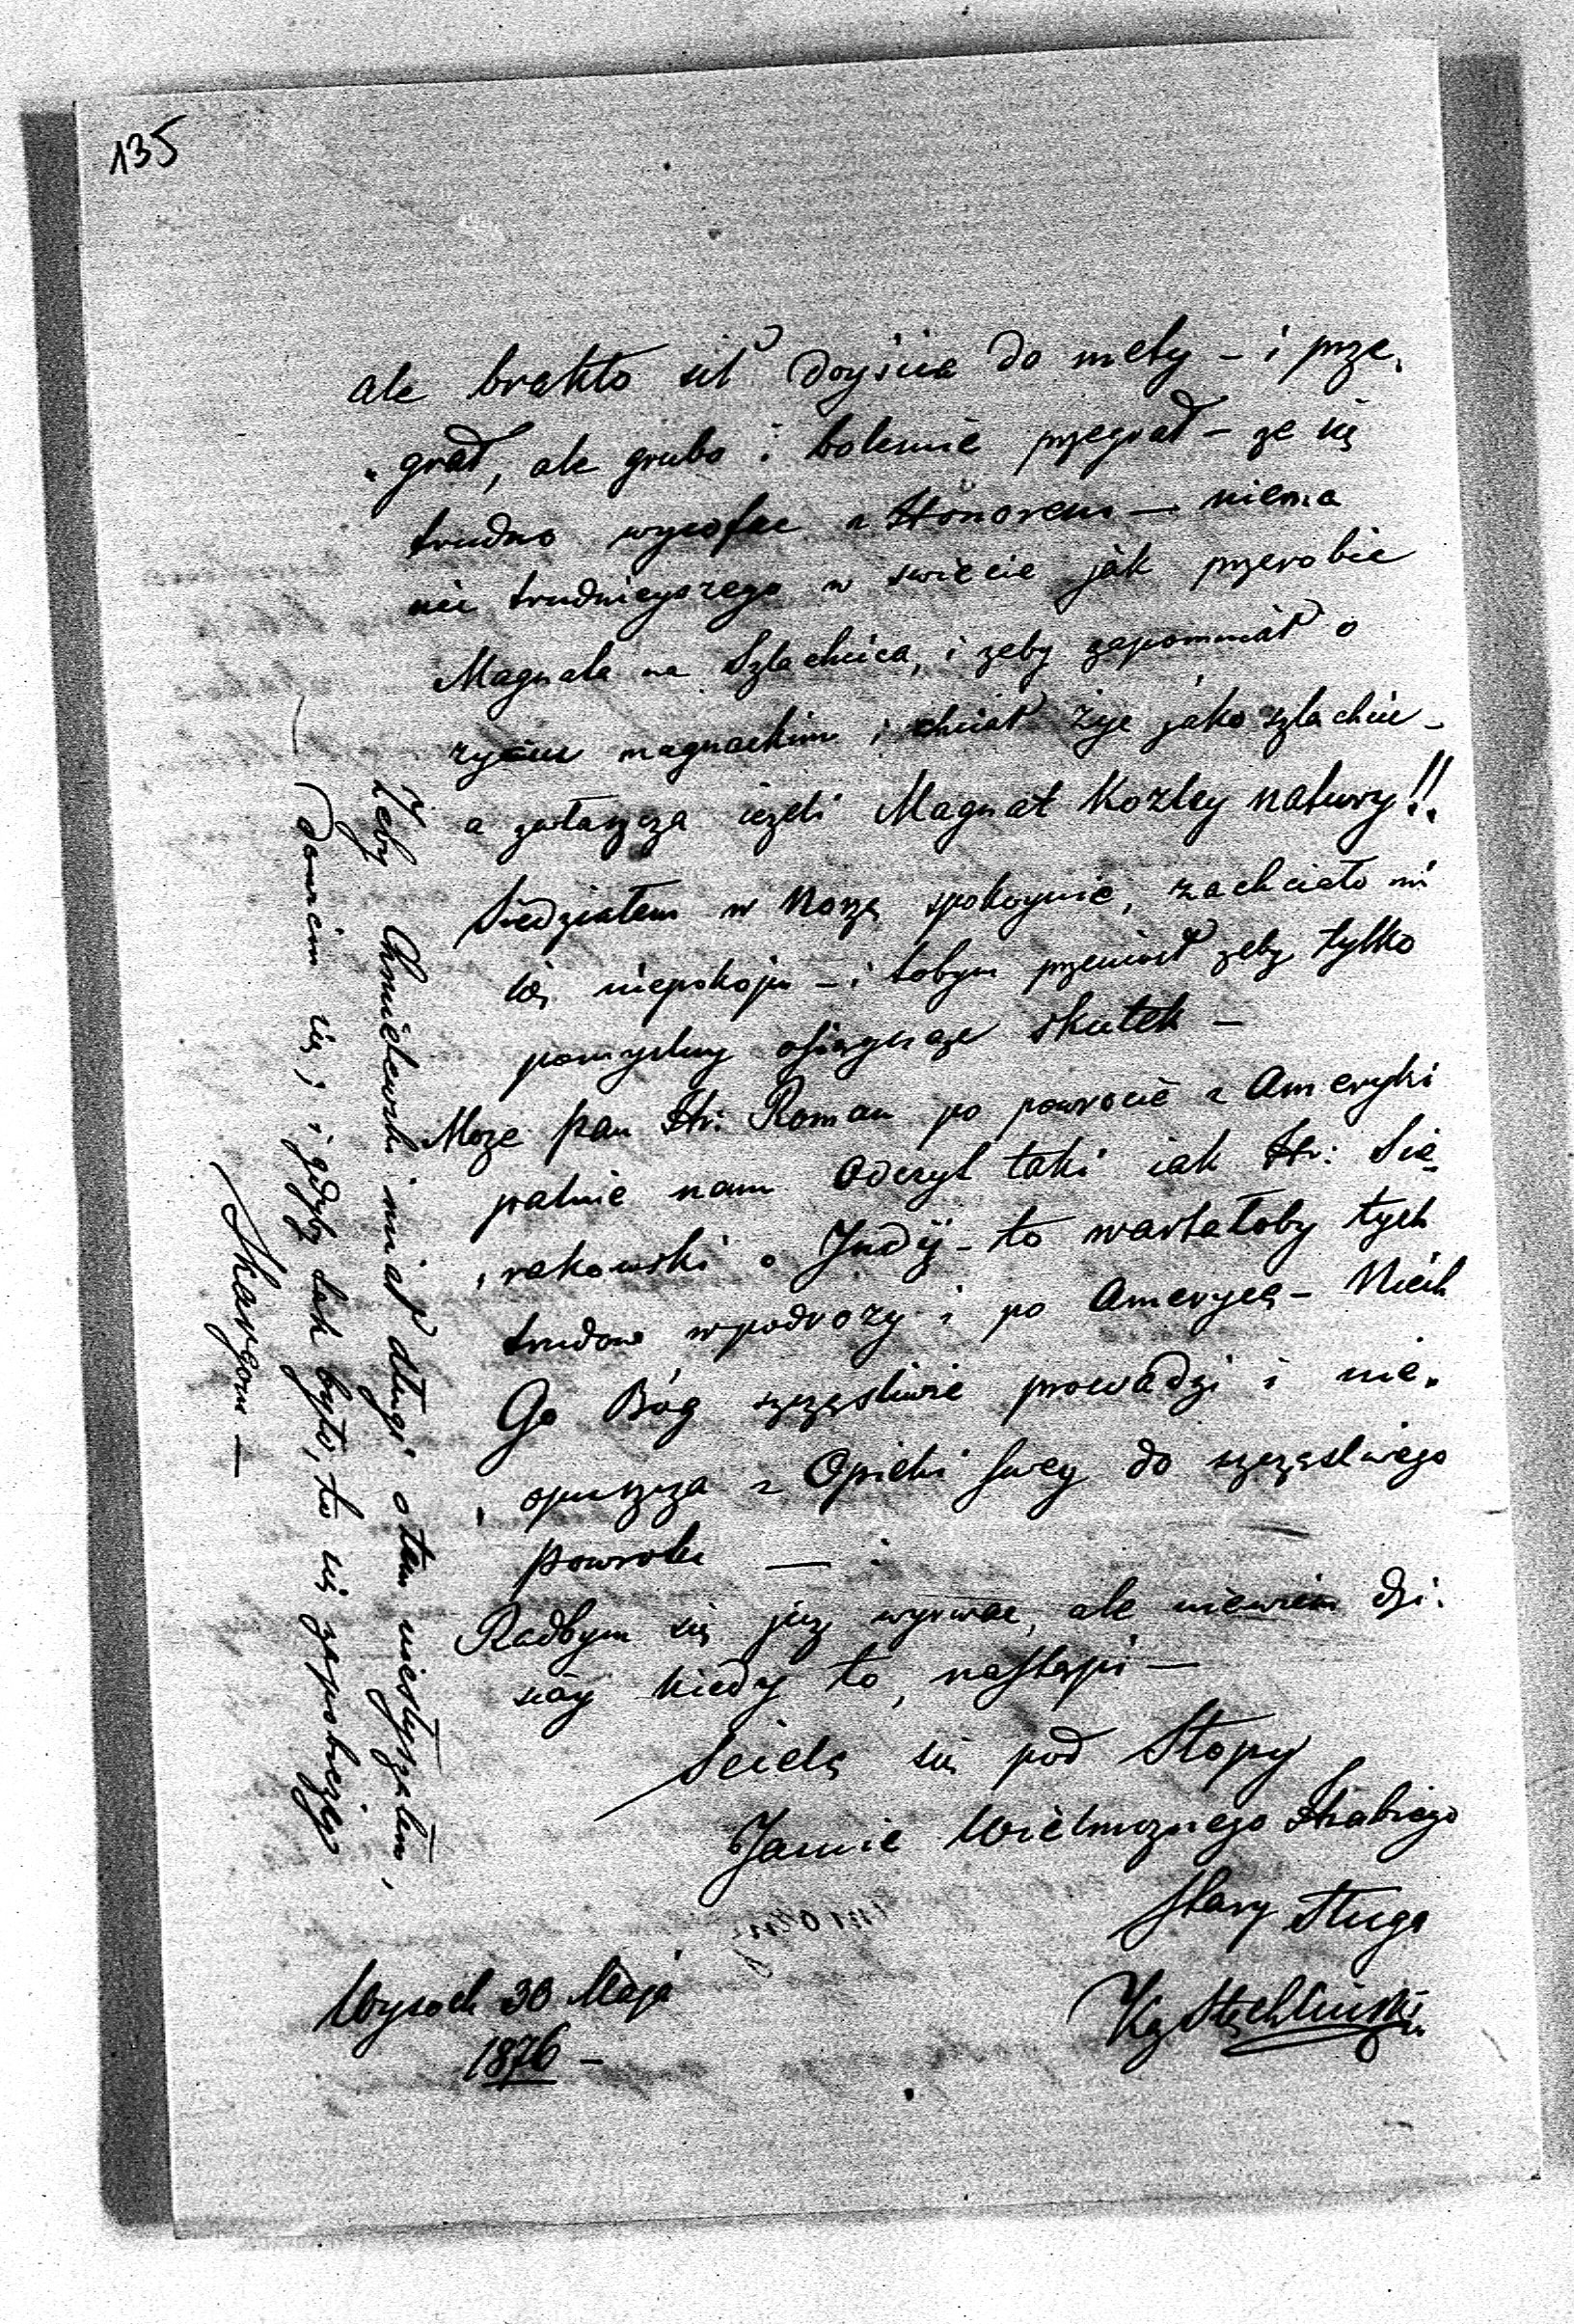 135
ale brakło sił dojścia do mety - i prze,
"grał, ale grubo i boleśnie przegrał - że się
trudno wycofac z Honorem - niema
nic trudnieyszego w swiecie jak przerobic
Magnata na Szlachcica, i zeby zapomniał o
zyciu magnackim i chciał żyć jako szlachcic -
a zwłaszcza ieżeli Magnat Kozley natury!!
Siedziałem w Norze spokoynie, zachciało mi
się niepokoju - i tobym przeniosł zeby tylko
pomyslny osiągnąc skutek -
Moze pan Hr: Roman po powrocie z Ameryki
palnie nam Odczyt taki iak Hr: Sie,
,rakowski o Indÿ - to wartałoby tych
trudow w podrozy i po Ameryce - Niech
Go Bóg szczęsliwie prowadzi i nie"
"opuszcza z Opieki swey do szczęsliwego
powrotu —
Radbym się juz wyrwac, ale niewiem dzi:
siay kiedy to nastąpi —
Scielę się pod Stopy
Jaśnie Wielmoznego Hrabiego
Stary Sługa
Wysock 30 Maja
1876 -
Zeby Chmielewski miał długi o tem niesłyszałem,
— dowiem się, i gdyby tak było, to się zapobieży
Skargom —